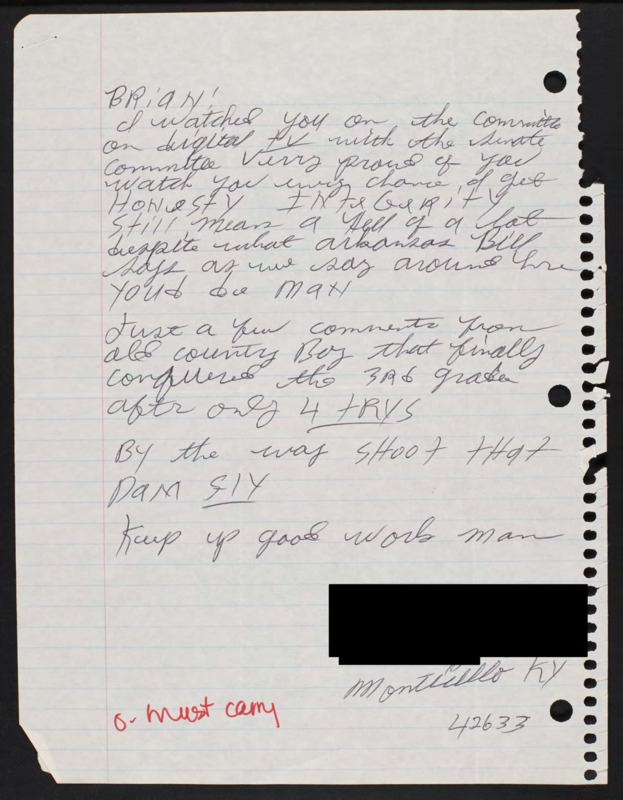 BRiaN!
I watched you on the committe
on digital TV with the senate
committee Very proud of you
watch you every chance I get
HONESTY INTEGERITY
Still mean a Hell of a lot
despite what arkansas Bill
says as we say around here
YOUd da MAN
Just a few comments from
old country Boy that finally
conquered the 3Rd grade
after only 4 tRYS
BY the way SHOOT THAT
DAM FLY
Keep up good work man
Monticello KY
42633
o- Must carry